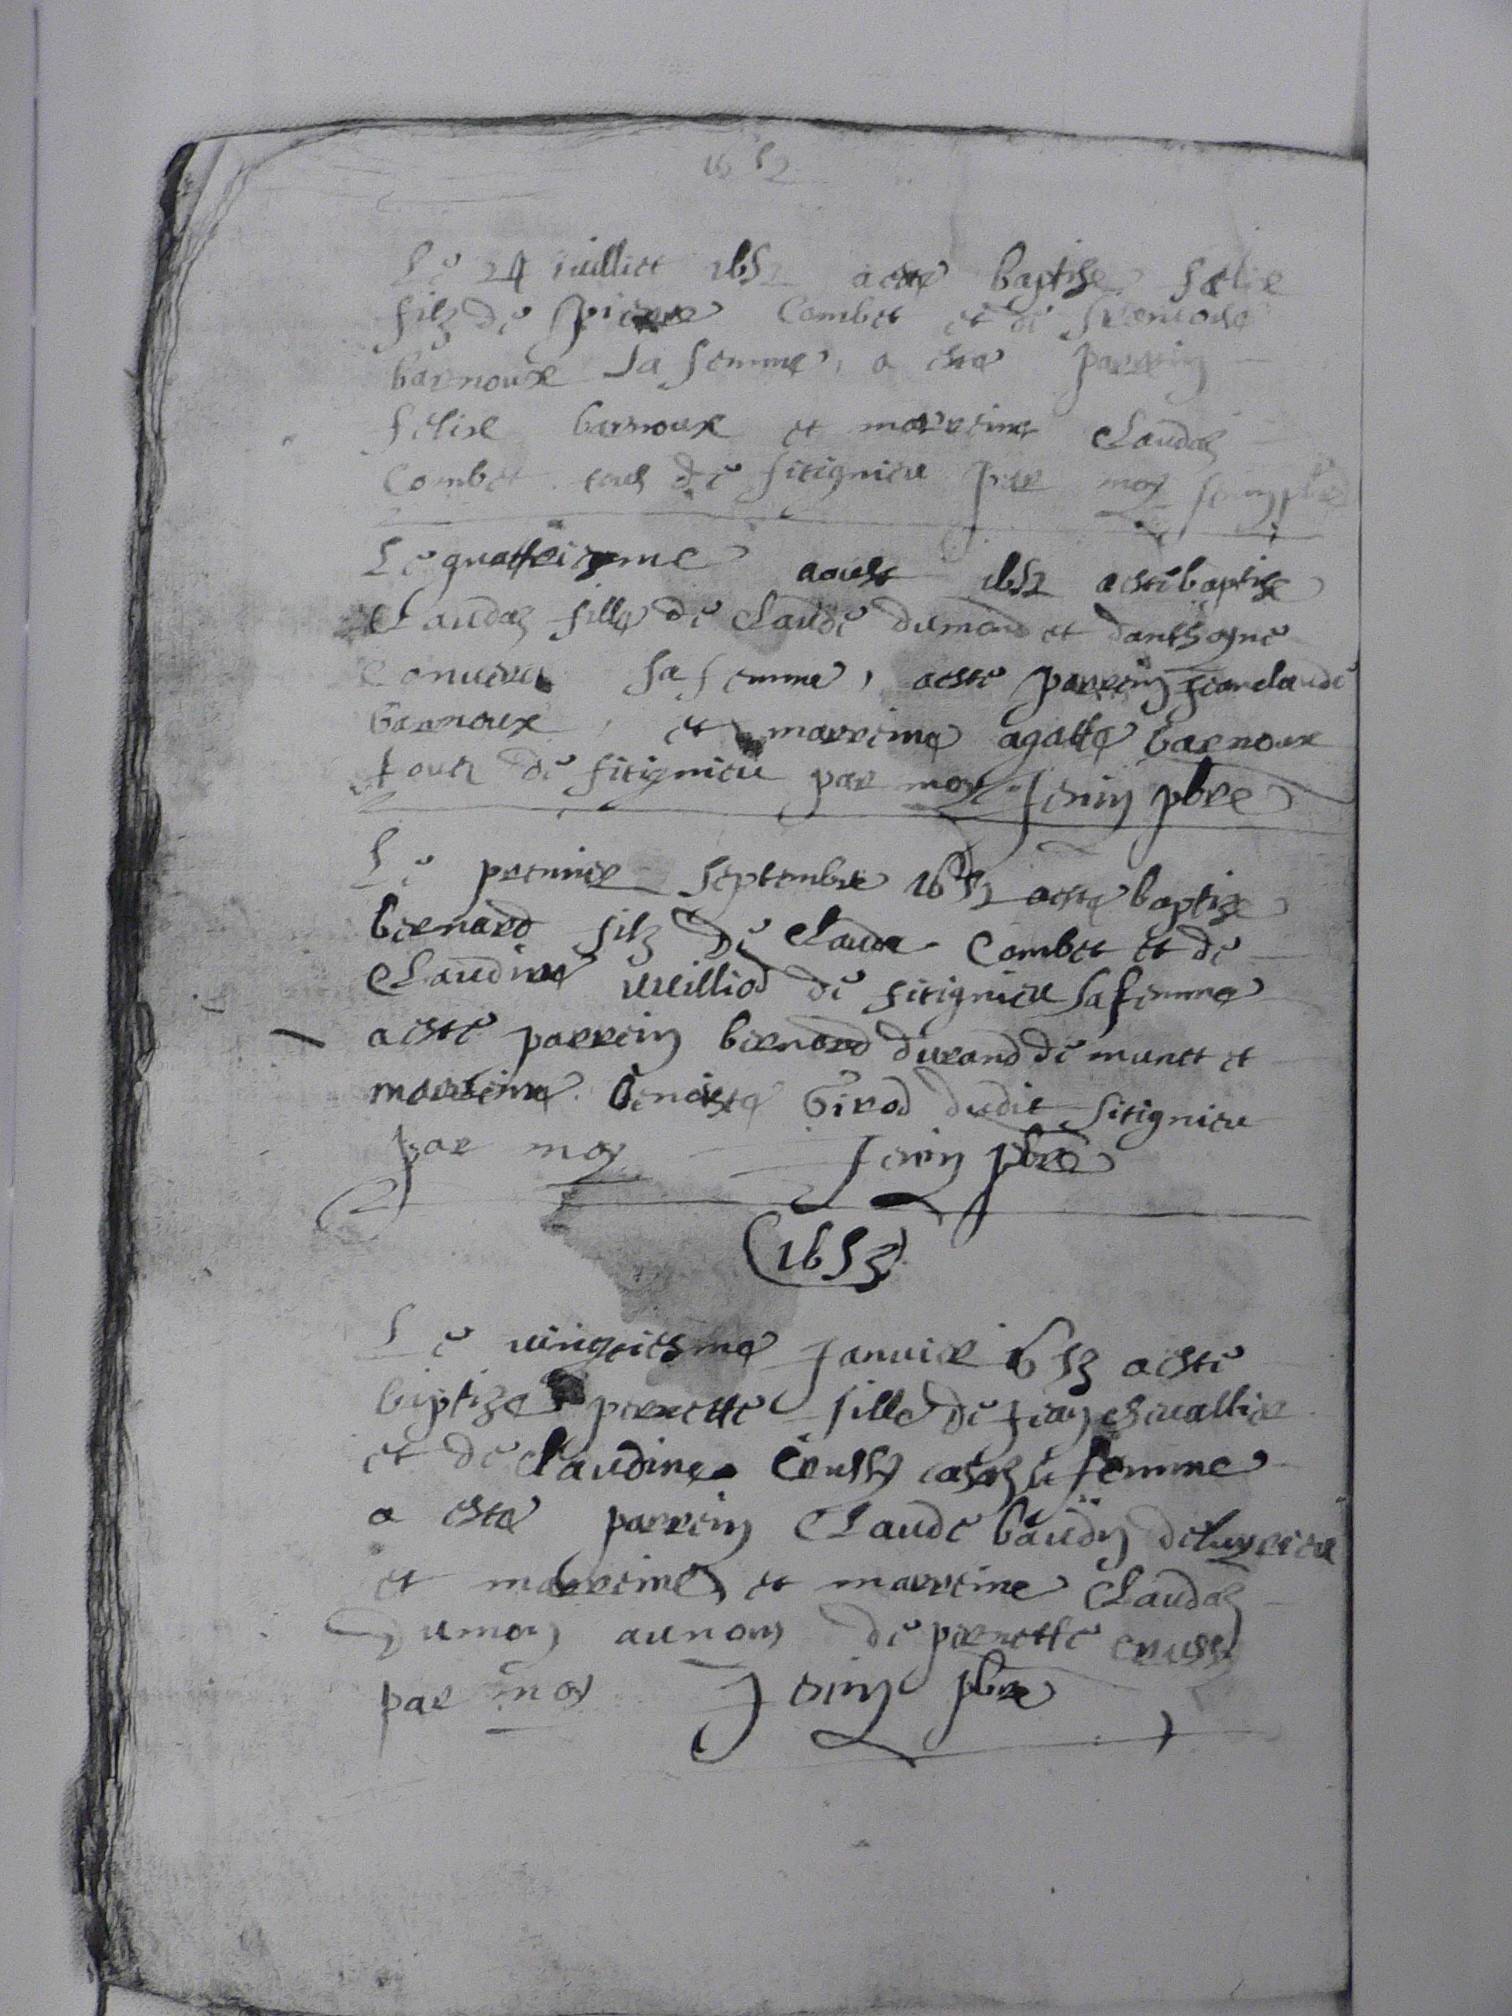 1652
Le 24 juilliet 1652 a esté baptisé felix
filz de pierre Combet et de
barnoux sa femme, a este parrein
felix barnoux et marreine Claudaz
Combet tous de fitignieu par moy Jenin pbre
Le quattriesme aoust 1652 a esté baptisé
Claudaz fille de Claude dumond et danthoyne
sa femme, a esté parrein jean claude
barnoux, et marreine agatte barnoux
tous de fitignieu par moy Jenin pbre
Le premier septembre 1652 a esté baptizé
bernard filz de Claude Combet et de
Claudine vuilliod de fitignieu sa femme
a esté parrein bernard durand de munet et
marreine benoiste Girod dudit fitignieu
par moy Jenin pbre
(1653)
Le vingtiesme Janvier 1653 a esté
baptizé pernette fille de jean chevallier
et de Claudine Crussy femme
a esté parrein Claude baudy
et marreine et marreine Claudaz
Dumon au nom de pernette Crussy
par moy Jenin pbre